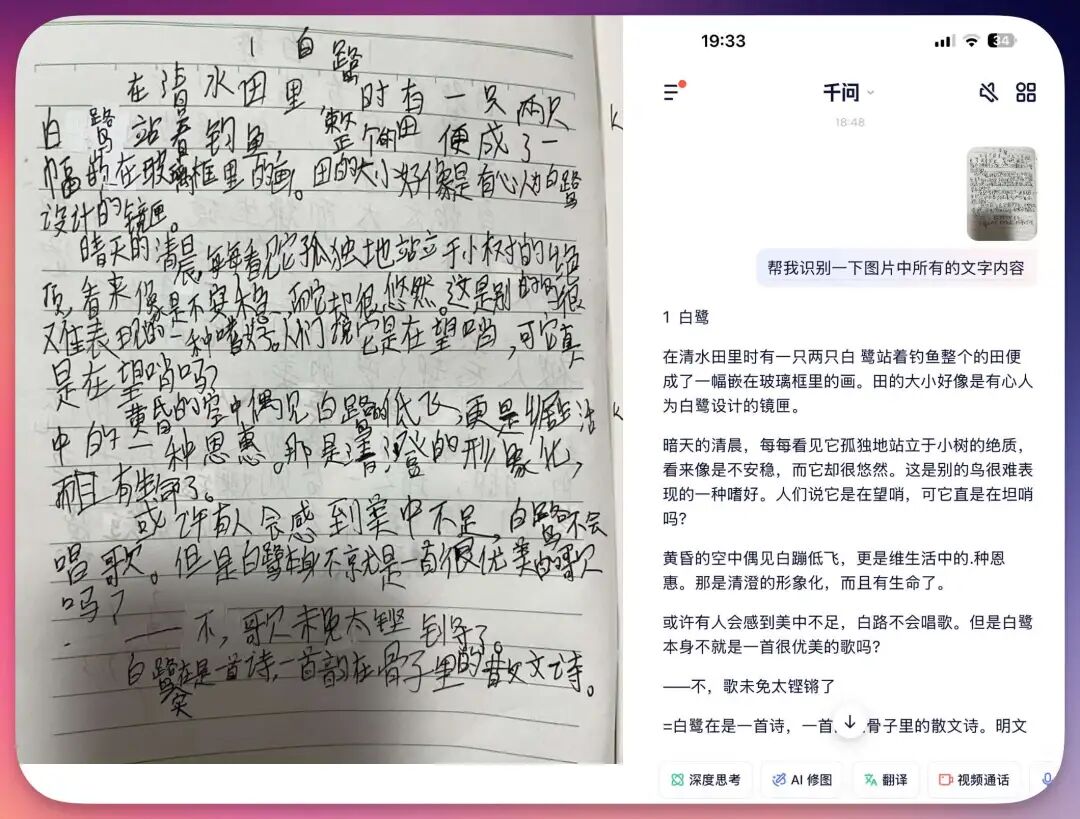 1 白鹭
在清水田里 时有一只两只
白鹭站着钓鱼,整个的田 便成了一
幅嵌在玻璃框里的画。田的大小好像是有心人为白鹭
设计的镜匣。
晴天的清晨,每每看见它孤独地站立于小树的绝
顶,看来像是不安稳,而它却很悠然。这是别的鸟很
难表现的一种嗜好。人们说它是在望哨,可它真
是在望哨吗?
黄昏的空中偶见白鹭的低飞,更是乡居生活
中的一种恩惠。那是清澄的形象化,
而且有生命了。
或许有人会感到美中不足,白鹭不会
唱歌。但是白鹭本身不就是一首很优美的歌
吗?
——不,歌未免太铿锵了。
白鹭实在是一首诗,一首韵在骨子里的散文诗。
K
K
19:33
34
千问
18:48
帮我识别一下图片中所有的文字内容
1 白鹭
在清水田里时有一只两只白 鹭站着钓鱼整个的田便
成了一幅嵌在玻璃框里的画。田的大小好像是有心人
为白鹭设计的镜匣。
暗天的清晨,每每看见它孤独地站立于小树的绝质,
看来像是不安稳,而它却很悠然。这是别的鸟很难表
现的一种嗜好。人们说它是在望哨,可它直是在坦哨
吗?
黄昏的空中偶见白蹦低飞,更是维生活中的.种恩
惠。那是清澄的形象化,而且有生命了。
或许有人会感到美中不足,白路不会唱歌。但是白鹭
本身不就是一首很优美的歌吗?
——不,歌未免太铿锵了
=白鹭在是一首诗,一首 骨子里的散文诗。明文
深度思考
AI 修图
翻译
视频通话